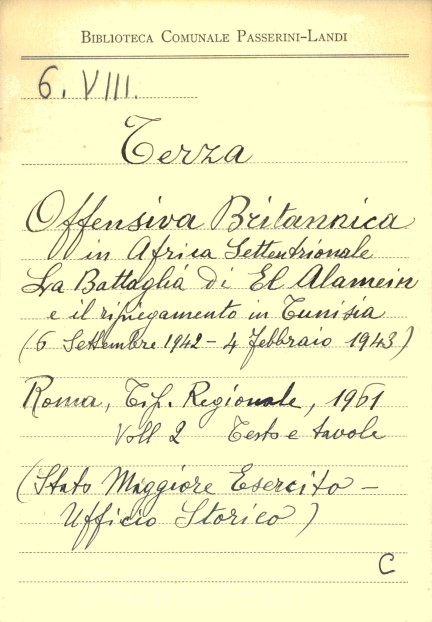 BIBLIOTECA COMUNALE PASSERINI-LANDI
6. VIII.
Terza
Offensiva Britannica
in Africa Settentrionale
La Battaglia di El Alamein
e il ripiegamento in Tunisia
(6 Settembre 1942 - 4 febbraio 1943)
Roma, Tip. Regionale, 1961
Voll 2 Testo e tavole
(Stato Maggiore Esercito -
Ufficio Storico)
C